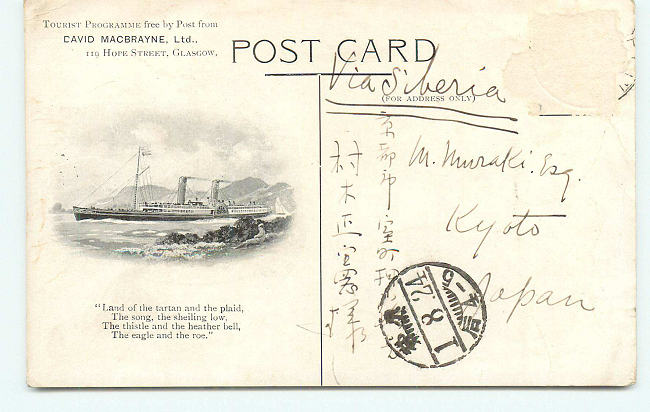 TOURIST PROGRAMME free by Post from
DAVID MACBRAYNE, Ltd.,
119 HOPE STREET, GLASGOW.
POST CARD
(FOR ADDRESS ONLY)
Via Siberia
M. Muraki. Esq.
Kyoto
Japan
京都市室町
村木正
1 8 24
"Land of the tartan and the plaid,
The song, the sheiling low,
The thistle and the heather bell,
The eagle and the roe."